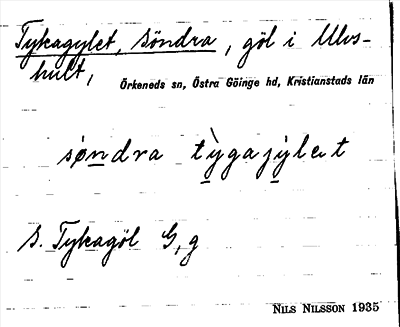 Tykagylet, Söndra, göl i Ulvs-
hult,
Örkeneds sn, Östra Göinge hd, Kristianstads län
söndra tỳgajylet
S. Tykagöl G, g
NILS NILSSON 1935